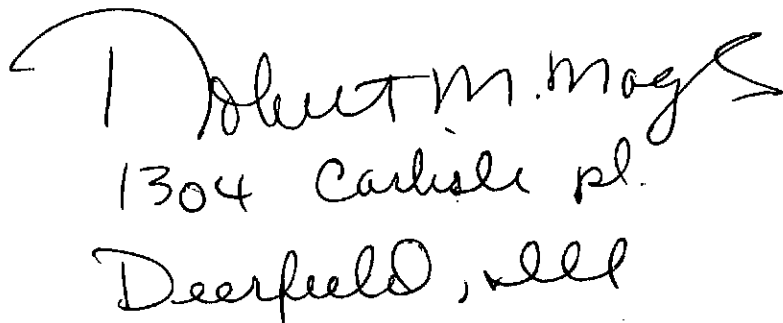 Robert M. Mogk
1304 Carlisle pl.
Deerfield, Ill